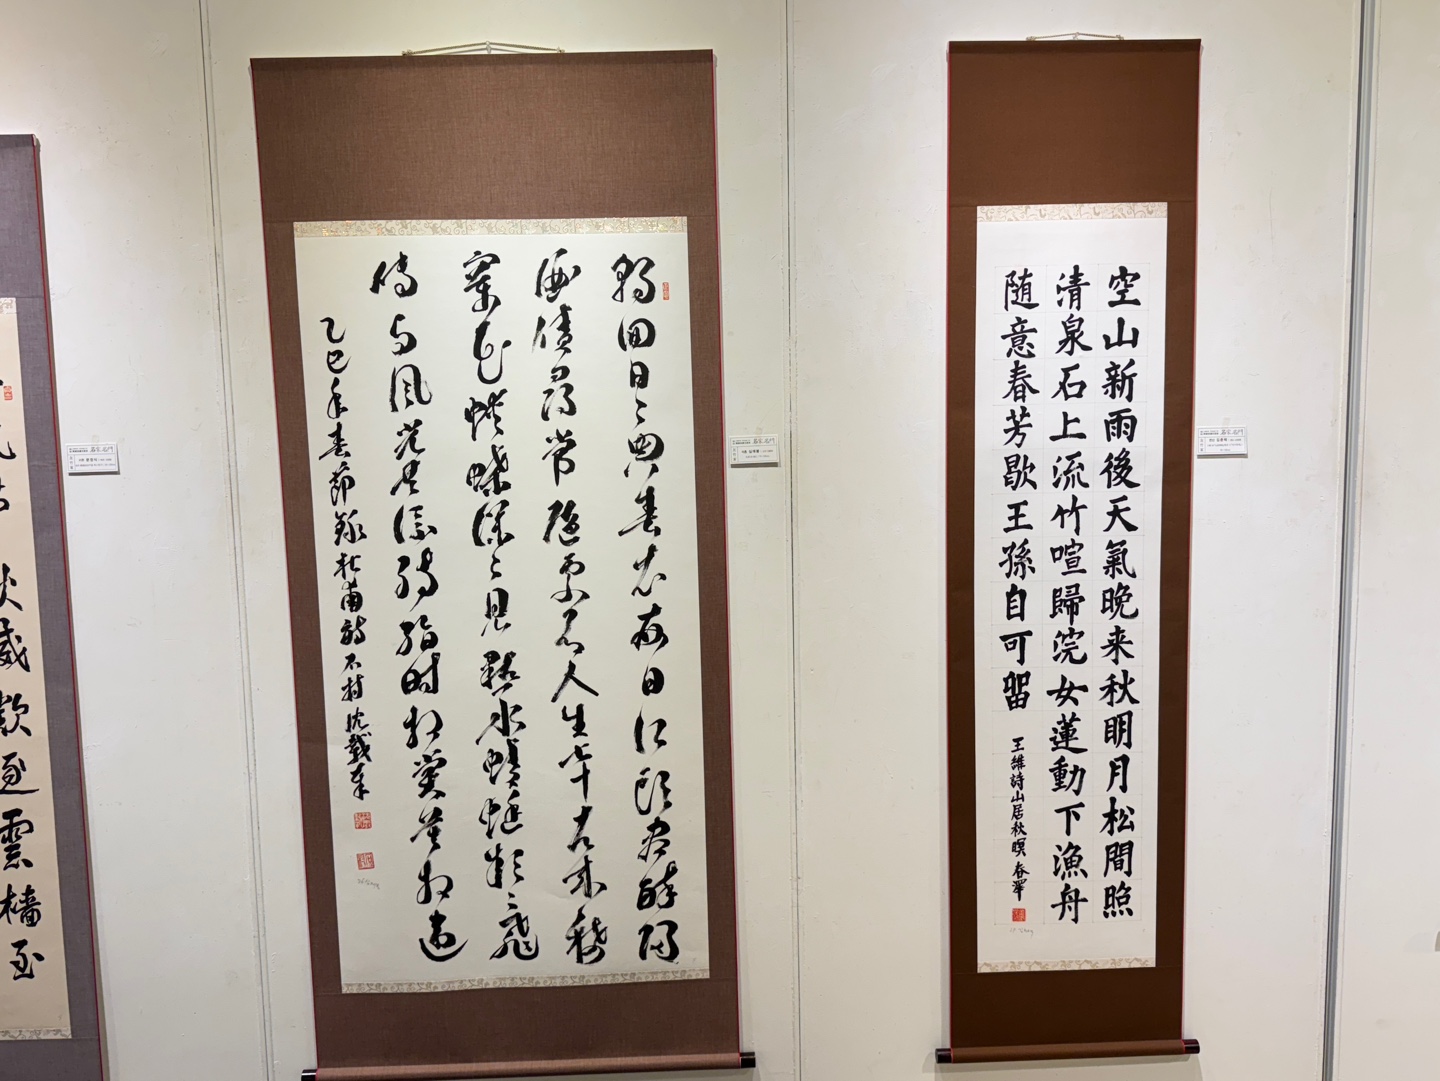 空山新雨後天氣晚来秋明月松間照
清泉石上流竹喧歸浣女蓮動下漁舟
随意春芳歇王孫自可畱
王維詩山居秋暝 春澤
朝回日〻典春衣每日江頭盡醉歸
酒債尋常行處有人生七十古来稀
穿花蛺蝶深〻見點水蜻蜓款〻飛
傳与風光共流轉暫時相賞莫相違
乙巳年春節錄杜甫詩
歎逐雲檣至